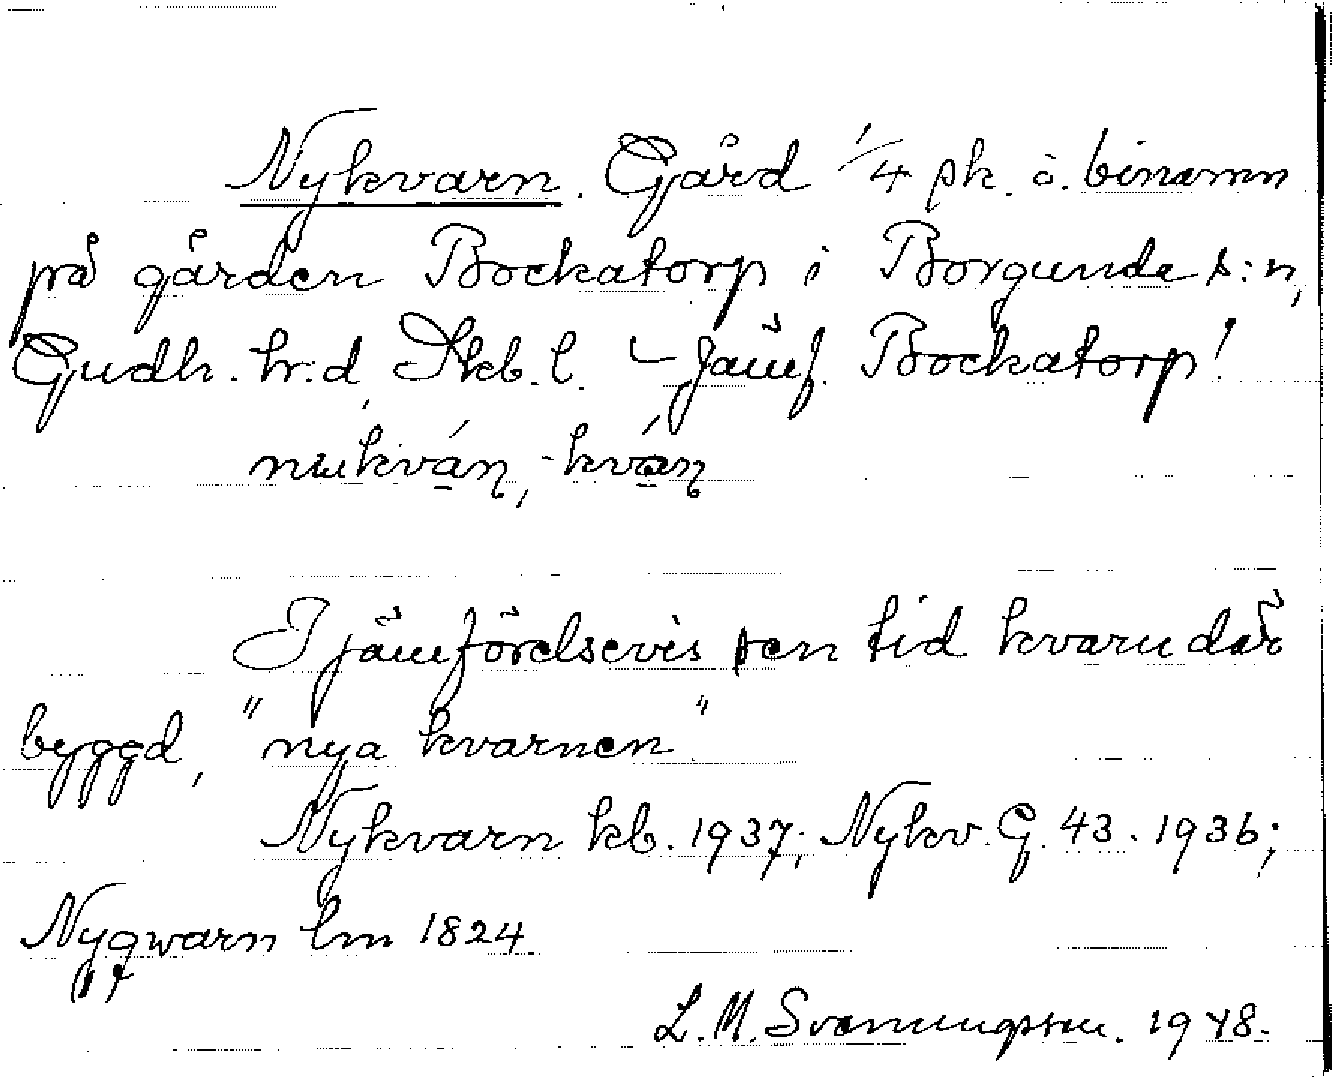 Nykvarn. Gård 1/4 pk. ö. binamn
på gården Bockatorp i Borgunda s:n,
Gudh. hr:d, Skb. l. — Jämf. Bockatorp!
-kván
I jämförelsevis sen tid kvarn där
byggd, "nya kvarnen"
Nykvarn kb. 1937; Nykv. G. 43. 1936;
Nyqwarn lm 1824
L. M. Svenungsson. 1948.